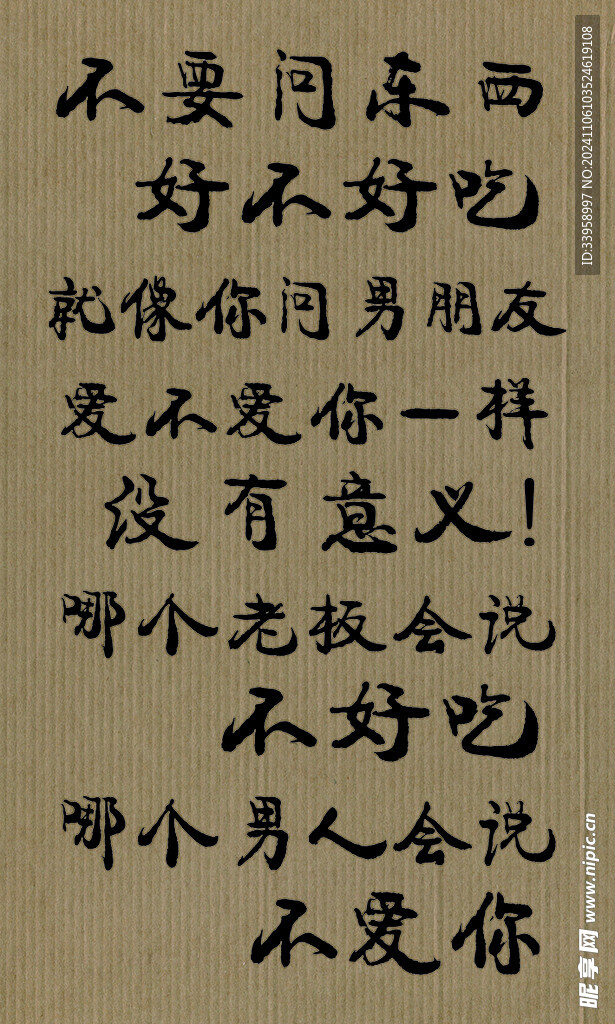 不要问东西
好不好吃
就像你问男朋友
爱不爱你一样
没有意义!
哪个老板会说
不好吃
哪个男人会说
不爱你
ID:33958997 NO:20241106103524619108
昵享网 www.nipic.cn